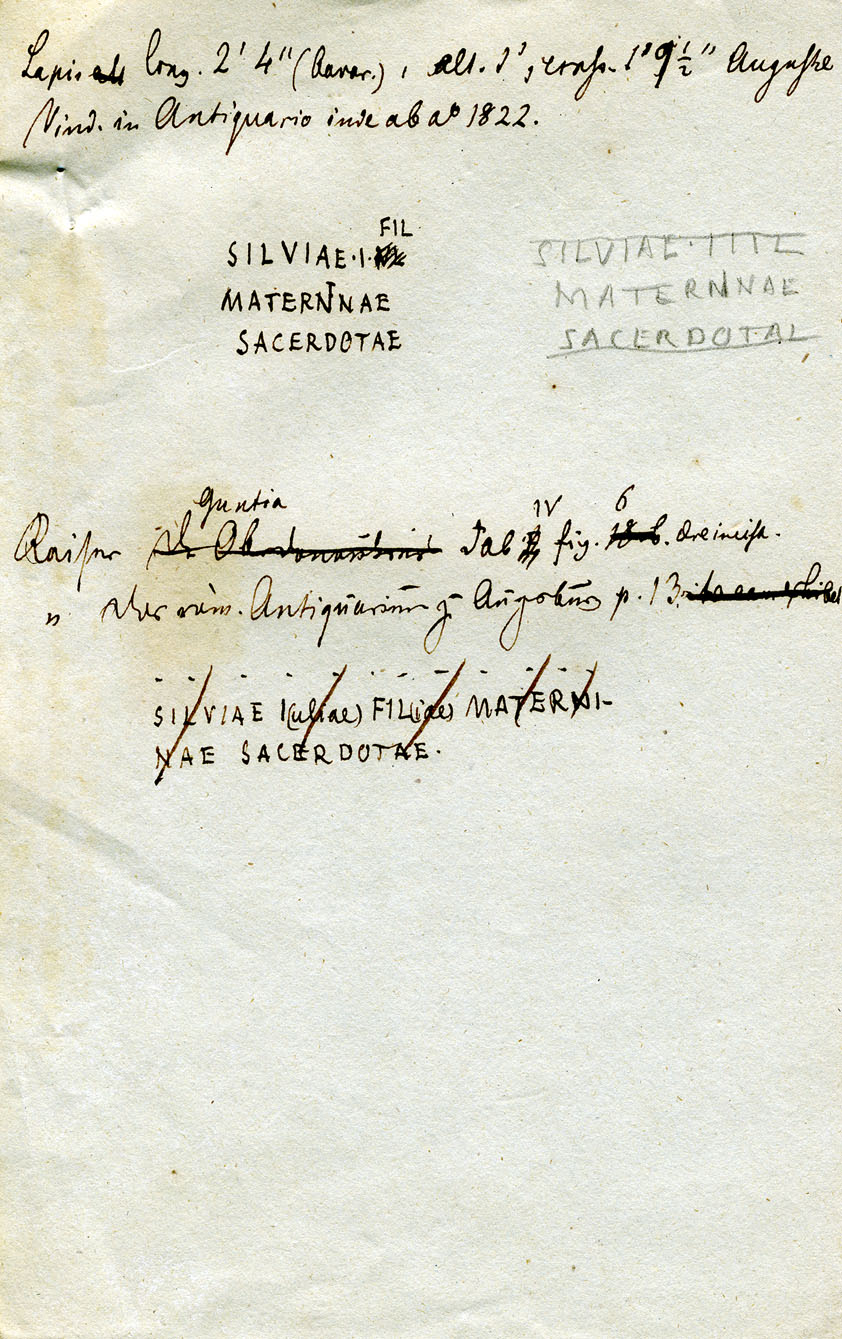 Lapis long. 2' 4" (bavar.), alt. 1', crass. 1' 9 ½" Augustae
Vind. in Antiquario inde ab a° 1822.
FIL
SILVIAE·I·
MATERNNAE
SACERDOTAE
SILVIAE·IIIL
MATERNNAE
SACERDOTAL
Guntia IV 6
Raiser Tab fig. b. aere incisa.
" Das röm. Antiquarium zu Augsburg p. 13
SILVIAE I(uliae) FIL(iae) MATERNI-
NAE SACERDOTAE.